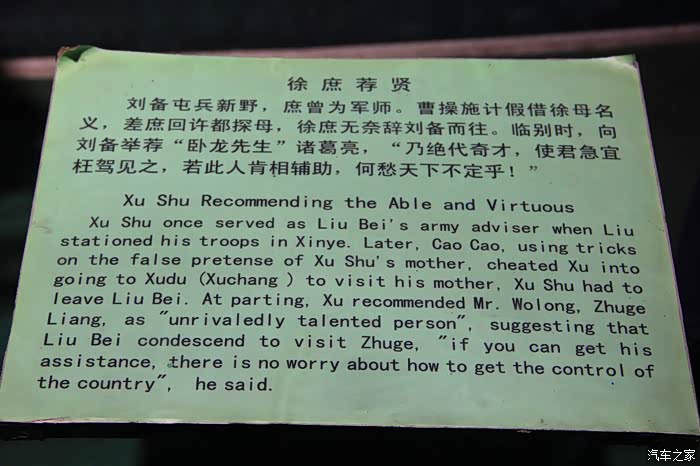 徐庶荐贤
刘备屯兵新野，庶曾为军师。曹操施计假借徐母名
义，差庶回许都探母，徐庶无奈辞刘备而往。临别时，向
刘备举荐“卧龙先生”诸葛亮，“乃绝代奇才，使君急宜
枉驾见之，若此人肯相辅助，何愁天下不定乎！”
Xu Shu Recommending the Able and Virtuous
Xu Shu once served as Liu Bei's army adviser when Liu
stationed his troops in Xinye. Later, Cao Cao, using tricks
on the false pretense of Xu Shu's mother, cheated Xu into
going to Xudu (Xuchang ) to visit his mother, Xu Shu had to
leave Liu Bei. At parting, Xu recommended Mr. Wolong, Zhuge
Liang, as "unrivaledly talented person", suggesting that
Liu Bei condescend to visit Zhuge, "if you can get his
assistance, there is no worry about how to get the control of
the country", he said.
汽车之家